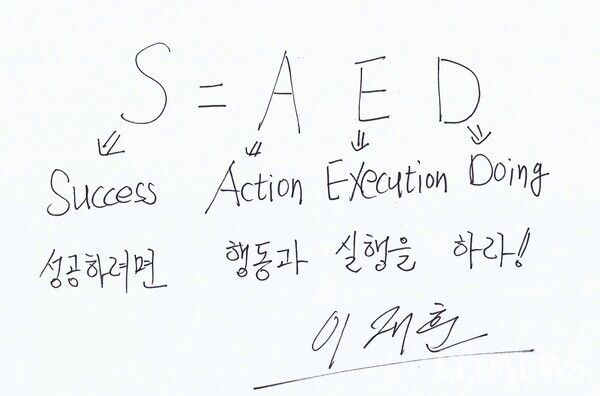 S = A E D
Success Action Execution Doing
성공하려면 행동과 실행을 하라!
이재환
CEONEWS